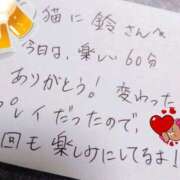 猫に鈴さんへ
今日は、楽しい60分
ありがとう！変わった
プレイだったので、
回も楽しみにしてるよ！